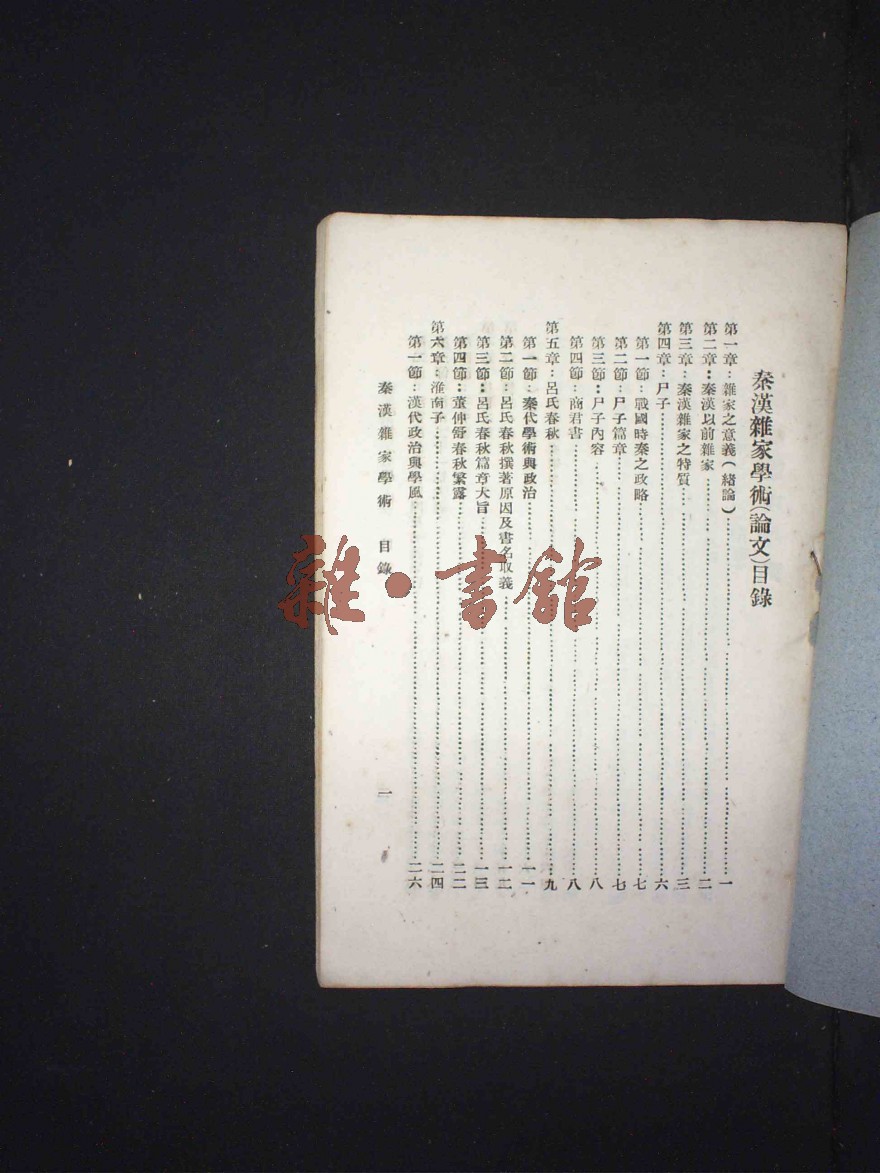 秦漢雜家學術(論文)目錄
第一章：雜家之意義(緒論)……一
第二章：秦漢以前雜家……二
第三章：秦漢雜家之特質……三
第四章：尸子……六
第一節：戰國時秦之政略……七
第二節：尸子篇章……七
第三節：尸子內容……八
第四節：商君書……八
第五章：呂氏春秋……九
第一節：秦代學術與政治……一一
第二節：呂氏春秋撰著原因及書名取義……一二
第三節：呂氏春秋篇章大旨……一三
第四節：董仲舒春秋繁露……二二
第六章：淮南子……二四
第一節：漢代政治與學風……二六
秦漢雜家學術 目錄 一
雜·書館